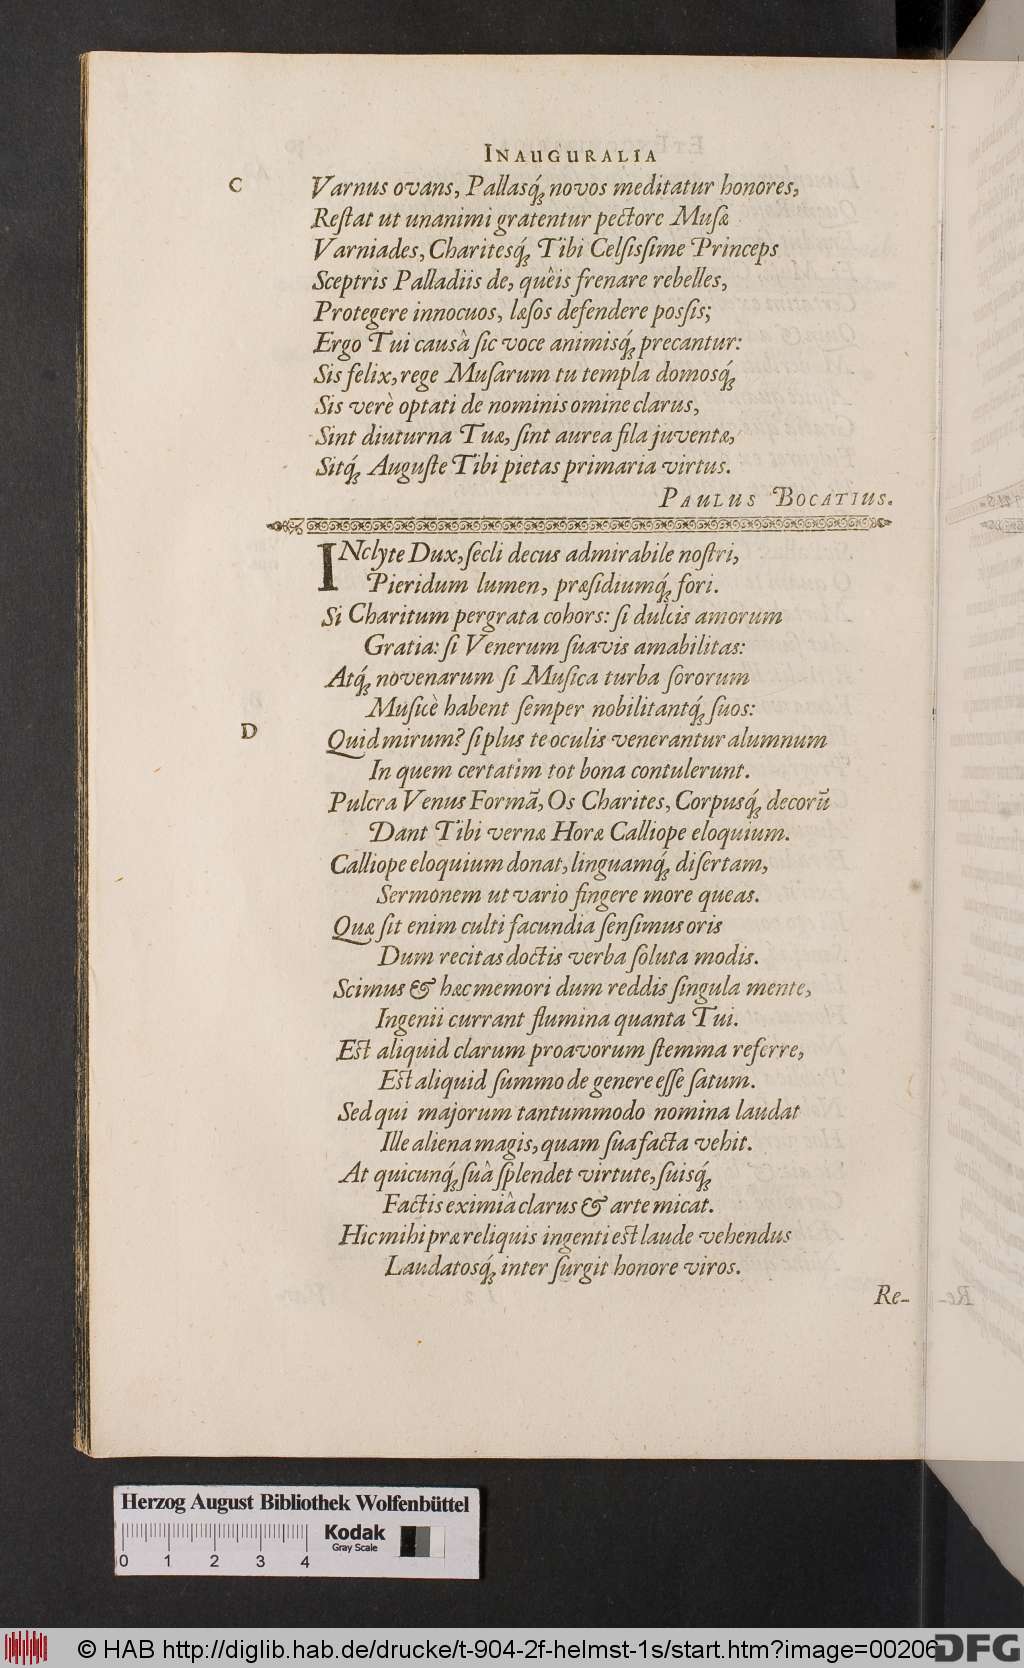 INAUGURALIA
C
Varnus ovans, Pallasq́; novos meditatur honores,
Reſtat ut unanimi gratentur pectore Muſæ
Varniades, Charitesq́; Tibi Celſisſime Princeps
Sceptris Palladiis de, quêis frenare rebelles,
Protegere innocuos, læſos defendere posſis;
Ergo Tui causâ ſic voce animisq́; precantur:
Sis felix, rege Muſarum tu templa domosq́;
Sis verè optati de nominis omine clarus,
Sint diuturna Tuæ, ſint aurea fila juventæ,
Sitq́; Auguſte Tibi pietas primaria virtus.
PAULUS BOCATIUS.
INclyte Dux, ſecli decus admirabile noſtri,
Pieridum lumen, præſidiumq́; fori.
Si Charitum pergrata cohors: ſi dulcis amorum
Gratia: ſi Venerum ſuavis amabilitas:
Atq́; novenarum ſi Muſica turba ſororum
Muſicè habent ſemper nobilitantq́; ſuos:
D
Quid mirum? ſi plus te oculis venerantur alumnum
In quem certatim tot bona contulerunt.
Pulcra Venus Formã, Os Charites, Corpusq́; decorũ
Dant Tibi vernæ Horæ Calliope eloquium.
Calliope eloquium donat, linguamq́; diſertam,
Sermonem ut vario fingere more queas.
Quæ ſit enim culti facundia ſenſimus oris
Dum recitas doctis verba ſoluta modis.
Scimus & hæc memori dum reddis ſingula mente,
Ingenii currant flumina quanta Tui.
Eſt aliquid clarum proavorum ſtemma referre,
Eſt aliquid ſummo de genere eſſe ſatum.
Sed qui majorum tantummodo nomina laudat
Ille aliena magis, quam ſua facta vehit.
At quicunq́; ſuâ ſplendet virtute, ſuisq́;
Factis eximiâ clarus & arte micat.
Hic mihi præ reliquis ingenti eſt laude vehendus
Laudatosq́; inter ſurgit honore viros.
Re-
Herzog August Bibliothek Wolfenbüttel
Kodak
Gray Scale
0 1 2 3 4
© HAB http://diglib.hab.de/drucke/t-904-2f-helmst-1s/start.htm?image=00206
DFG